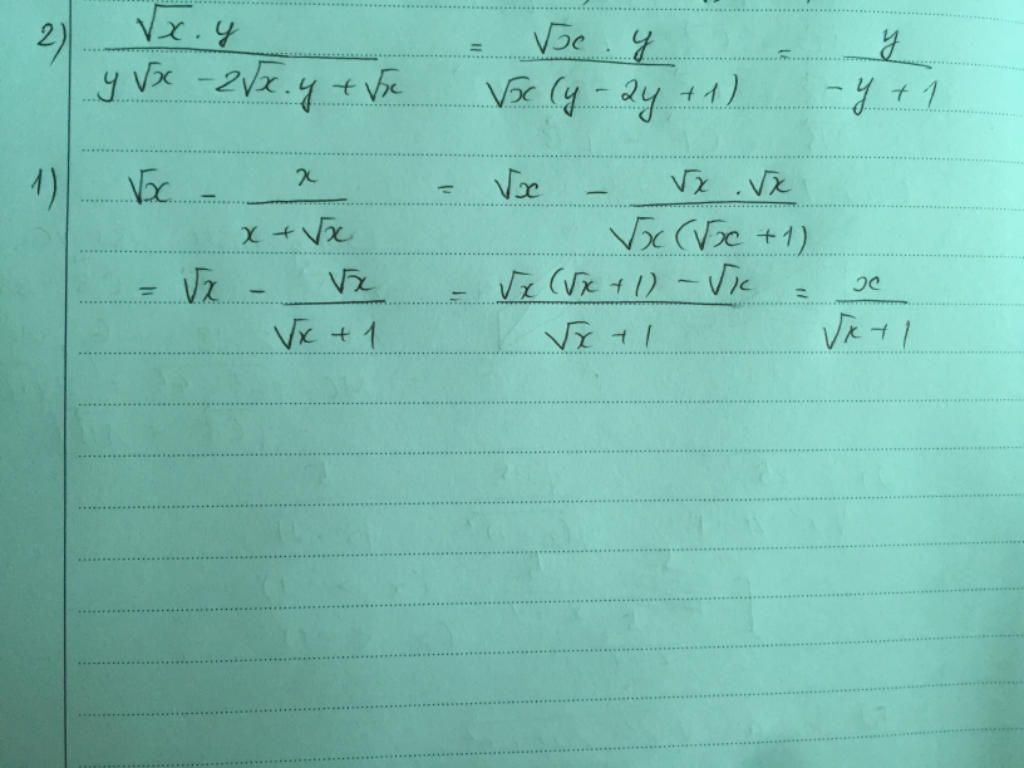 2) √x . y / (y √x - 2√x . y + √x) = √x . y / (√x (y - 2y + 1)) = y / (- y + 1)
1) √x - x / (x + √x) = √x - √x . √x / (√x (√x + 1))
= √x - √x / (√x + 1) = (√x (√x + 1) - √x) / (√x + 1) = x / (√x + 1)